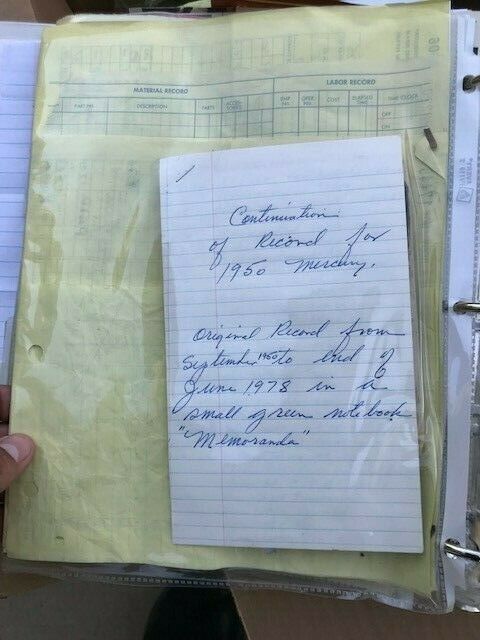 MATERIAL RECORD
LABOR RECORD
PART NO.
DESCRIPTION
PARTS
ACCES-
SORIES
EMP.
NO.
OPER.
NO.
COST
ELAPSED
TIME
TIME CLOCK
OFF
ON
Continuation
of Record for
1950 Mercury.
Original Record from
September 1950 to End of
June 1978 in a
small green notebook
"Memoranda"